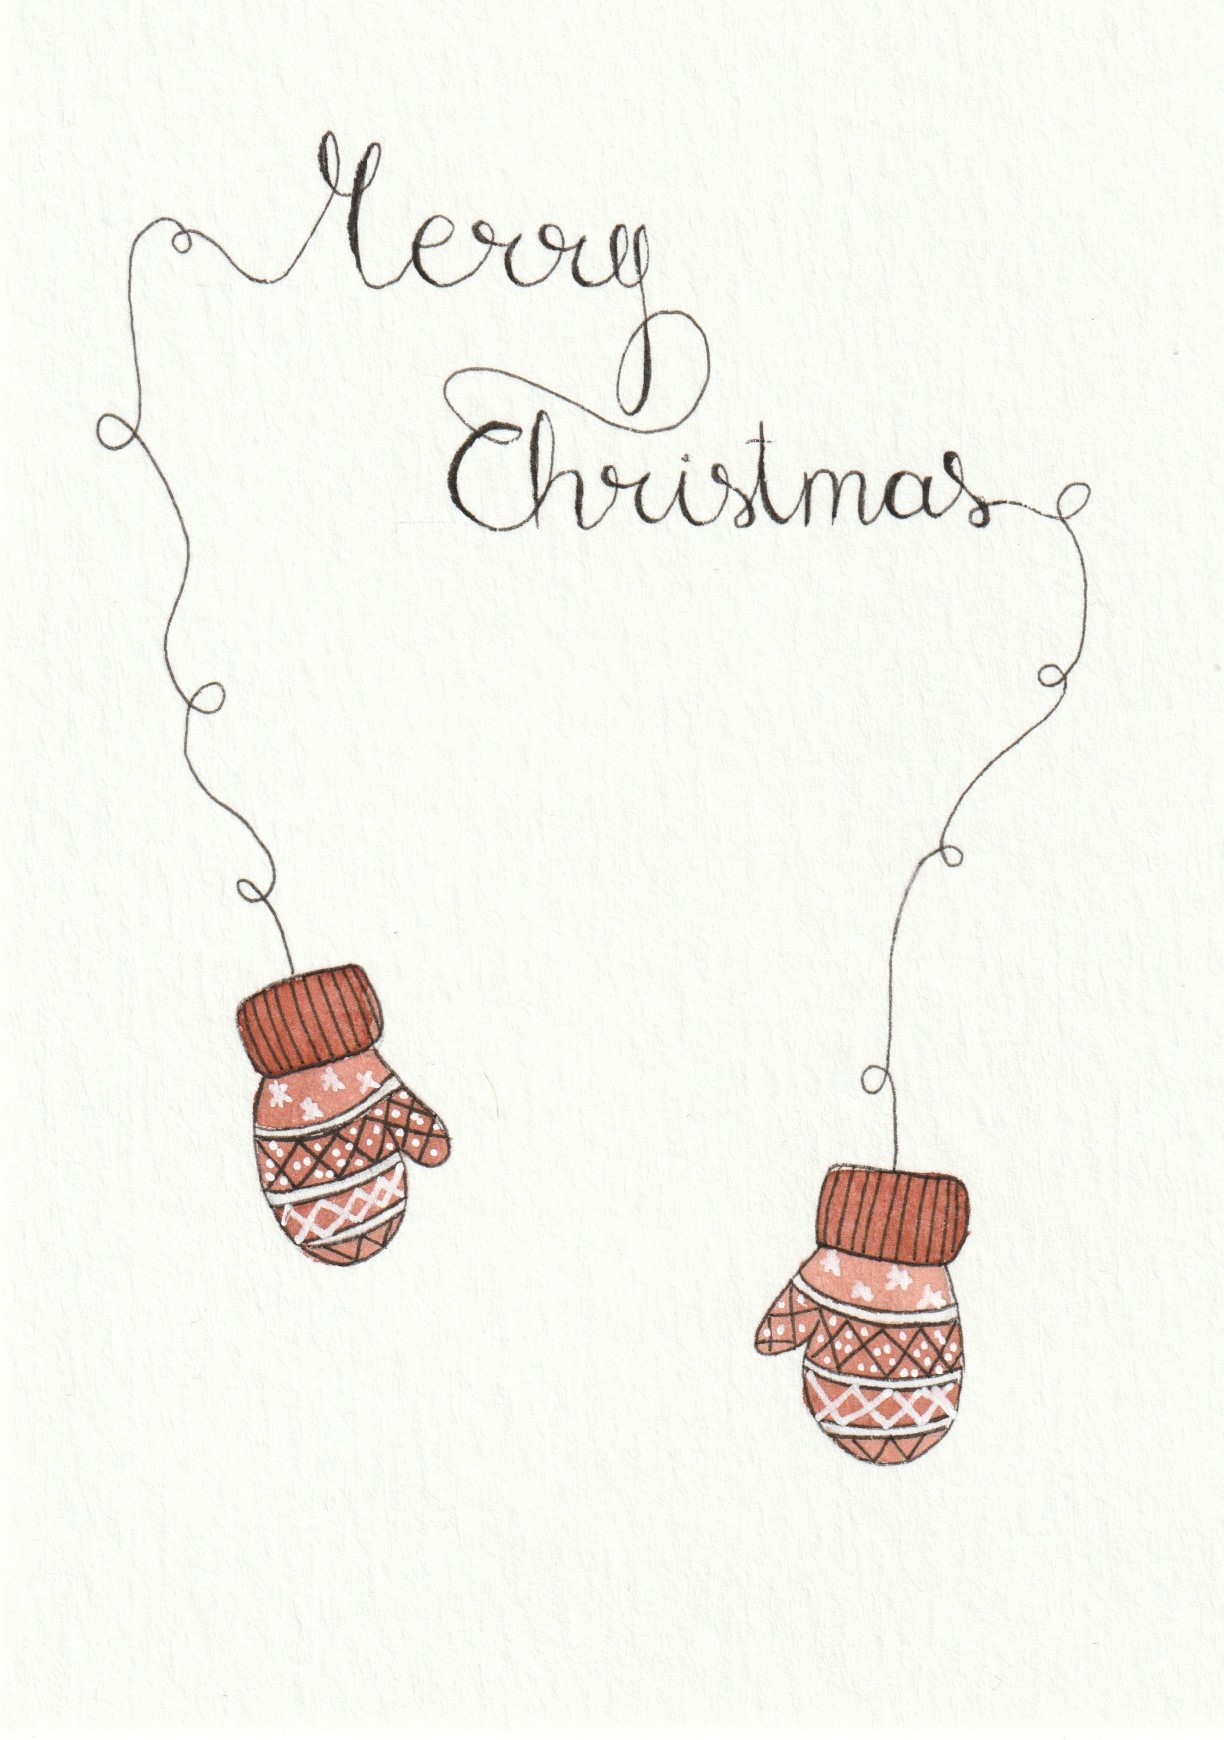 Merry
Christmas